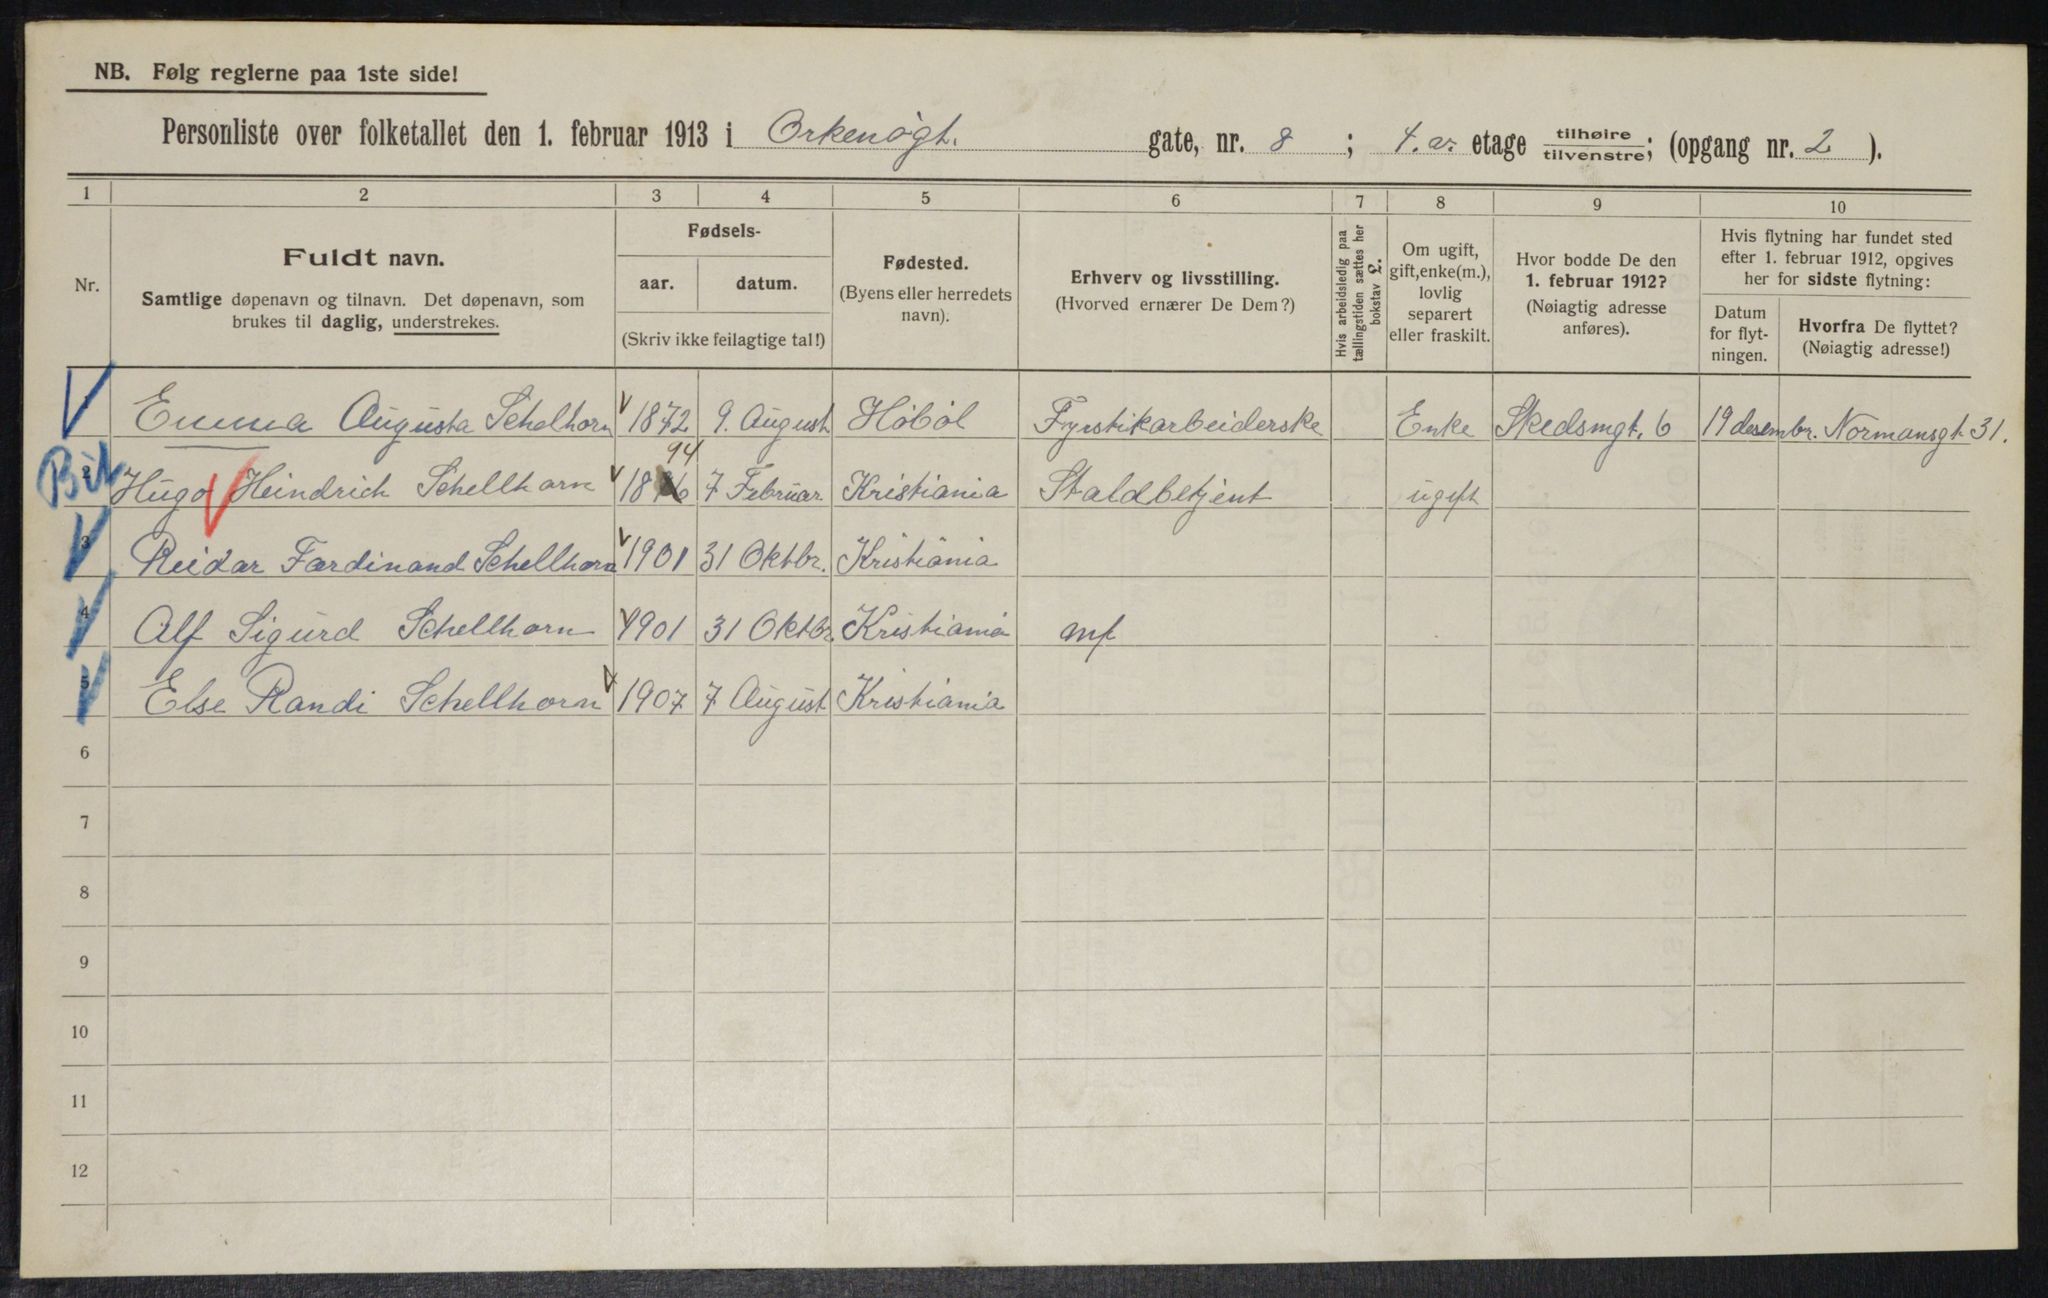 NB. Følg reglerne paa 1ste side!
Personliste over folketallet den 1. februar 1913 i Orkenøgt. gate, nr. 8 ; 4. av. etage tilhøire tilvenstre; (opgang nr. 2 ).
1 2 3 4 5 6 7 8 9 10
Nr.
Fuldt navn.
Samtlige døpenavn og tilnavn. Det døpenavn, som
brukes til daglig, understrekes.
Fødsels-
aar. datum.
(Skriv ikke feilagtige tal!)
Fødested.
(Byens eller herredets
navn).
Erhverv og livsstilling.
(Hvorved ernærer De Dem?)
Hvis arbeidsledig paa
tællingstiden sættes her
bokstav L.
Om ugift,
gift, enke(m.),
lovlig
separert
eller fraskilt.
Hvor bodde De den
1. februar 1912?
(Nøiagtig adresse
anføres).
Hvis flytning har fundet sted
efter 1. februar 1912, opgives
her for sidste flytning:
Datum
for flyt-
ningen.
Hvorfra De flyttet?
(Nøiagtig adresse!)
Emma Augusta Schelhorn 1872 9. August Høbøl Fyrstikarbeiderske Enke Skedsmgt. 6 19 desembr. Normansgt. 31.
94
Bit 2 Hugo Heindrich Schellhorn 18 6 7 Februar Kristiania Staldbetjent ugift
3 Reidar Fardinand Schellhorn 1901 31 Oktbr. Kristiania
4 Alf Sigurd Schellhorn 1901 31 Oktbr. Kristiania
5 Else Randi Schellhorn 1907 7 August Kristiania
6
7
8
9
10
11
12